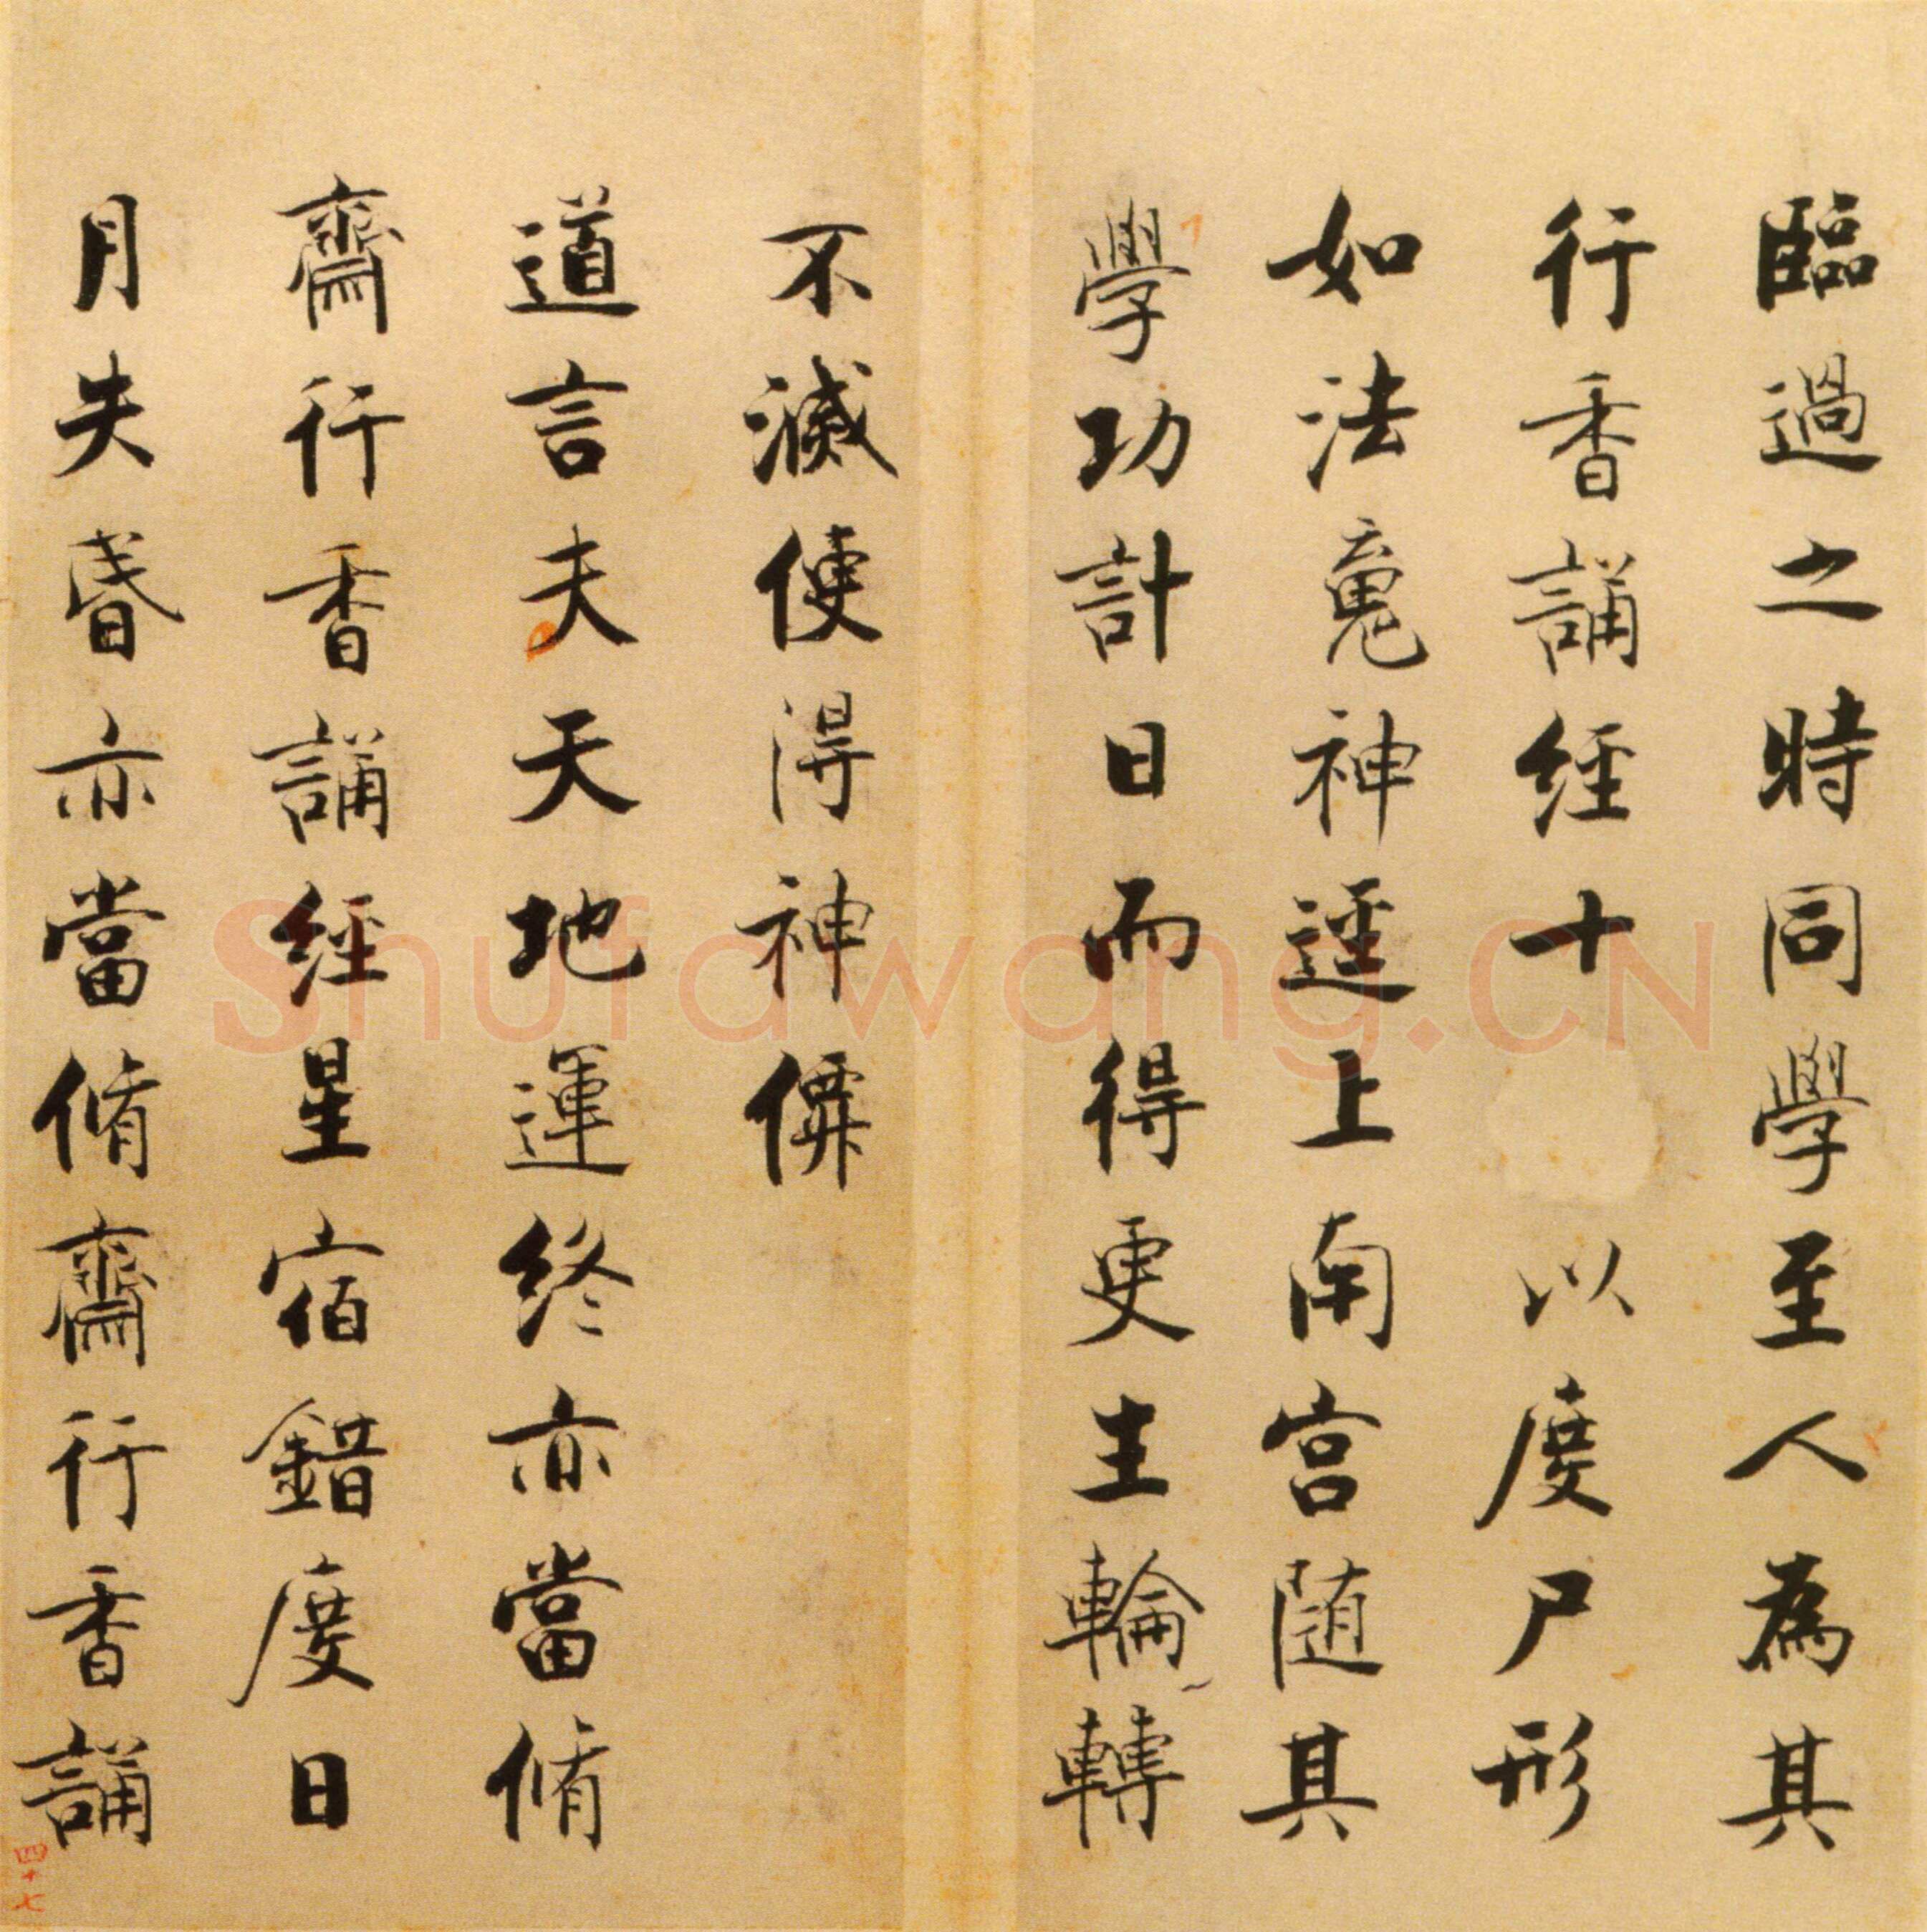 臨過之時同學至人為其
行香誦經十以度尸形
如法䰟神逕上南宮随其
學功計日而得更生輪轉
不滅便得神僊
道言夫天地運終亦當脩
齋行香誦經星宿錯度日
月失昏亦當脩齋行香誦
四十七
Shufawang.CN